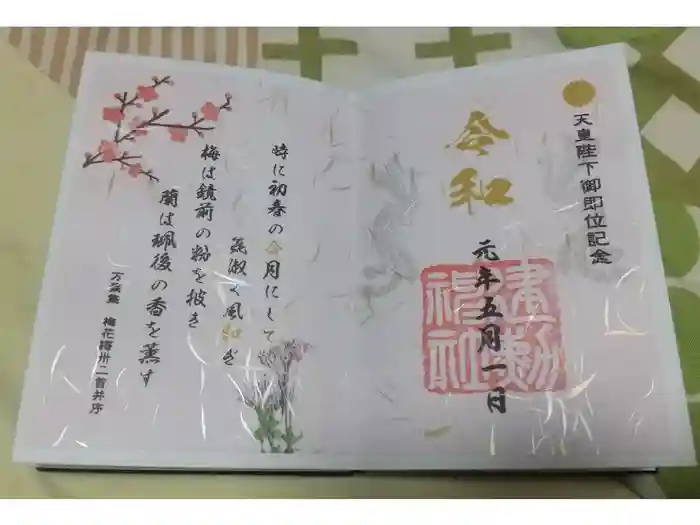 天皇陛下御即位記念
令和
元年五月一日
建勲
神社
時に初春の令月にして
氣淑く風和ぎ
梅は鏡前の粉を披き
蘭は珮後の香を薫す
万葉集 梅花謌卅二首并序